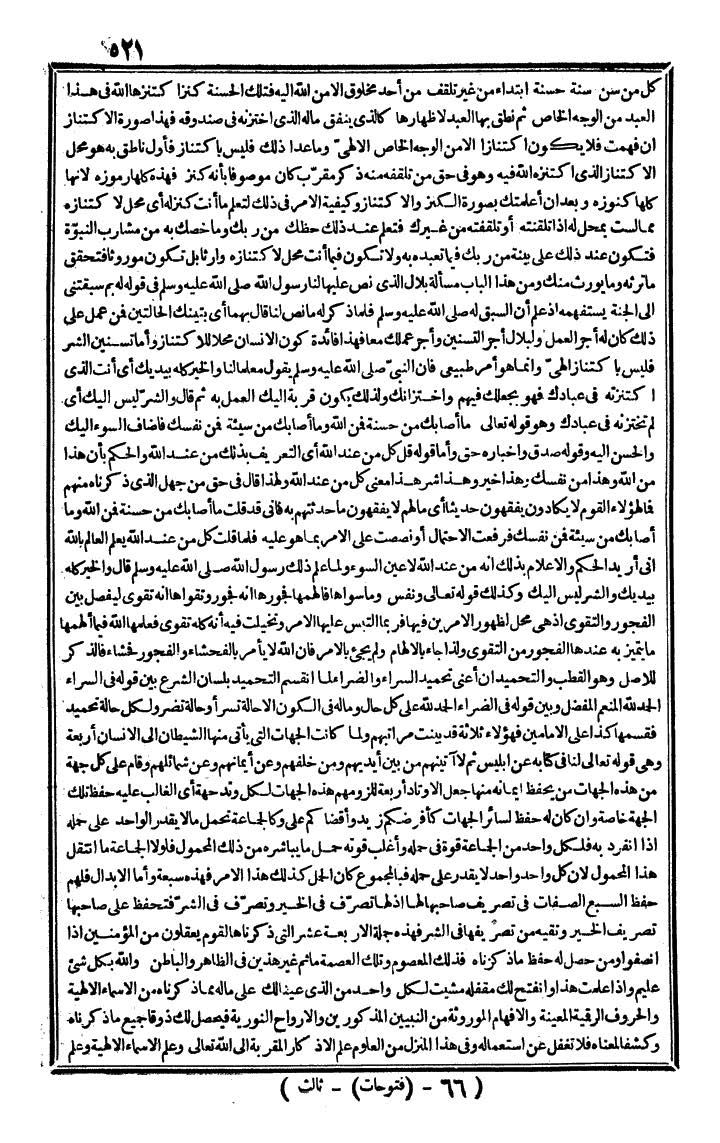 ٥٢١
كل من سن سنة حسنة ابتداء من غير تلقف من أحد مخلوق الا من الله اليه فتلك الحسنة كنزا كتنزها الله فى هذا
العبد من الوجه الخاص ثم نطق بها العبد لاظهارها كالذى ينفق ماله الذى اختزنه فى صندوقه فهذا صورة الاكتناز
ان فهمت فلا يكون اكتنازا الا من الوجه الخاص الالهىّ وماعدا ذلك فليس باكتناز فأول ناطق به هو محل
الاكتناز الذى اكتنزه الله فيه وهو فى حق من تلقفه منه ذكر مقرّب كان موصوفا بأنه كنز فهذه كلها رموزه لانها
كلها كنوزه وبعد ان أعلمتك بصورة الكنز والاكتناز وكيفية الامر فى ذلك لتعلم ما أنت كنز له أى محل لاكتنازه
مما لست بمحل له اذا تلقنته أو تلقفته من غيرك فتعلم عند ذلك حظك من ربك وما خصك به من مشارب النبوّة
فتكون عند ذلك على بينة من ربك فيما تعبده به ولا تكون فيما أنت محل لاكتنازه وارثا بل تكون موروثا فتحقق
ما ترثه وما يورث منك ومن هذا الباب مسألة بلال الذى نص عليها لنا رسول الله صلى الله عليه وسلم فى قوله له بم سبقتنى
الى الجنة يستفهمه اذ علم أن السبق له صلى الله عليه وسلم فلما ذكر له ما نص لنا قال بهما أى بتينك الحالتين فمن عمل على
ذلك كان له أجر العمل ولبلال أجر التسنين وأجر عملك معا فهذا فائدة كون الانسان محلا للاكتناز وأما تسنين الشر
فليس باكتناز الهىّ وانما هو أمر طبيعى فان النبىّ صلى الله عليه وسلم يقول معلما لنا والخير كله بيديك أى أنت الذى
اكتنزته فى عبادك فهو بجعلك فيهم واختزانك ولذلك يكون قربة اليك العمل به ثم قال والشرّ ليس اليك أى
لم تختزنه فى عبادك وهو قوله تعالى ما أصابك من حسنة فمن الله وما أصابك من سيئة فمن نفسك فاضاف السوء اليك
والحسن اليه وقوله صدق واخباره حق وأما قوله قل كل من عند الله أى التعريف بذلك من عند الله والحكم بأن هذا
من الله وهذا من نفسك وهذا خير وهذا شر هذا معنى كل من عند الله ولهذا قال فى حق من جهل الذى ذكرناه منهم
فمال هؤلاء القوم لا يكادون يفقهون حديثا أى مالهم لا يفقهون ما حدثتهم به فانى قد قلت ما أصابك من حسنة فمن الله وما
أصابك من سيئة فمن نفسك فرفعت الاحتمال أو نصصت على الامر بما هو عليه فلما قلت كل من عند الله يعلم العالم بالله
انى أريد الحكم والاعلام بذلك انه من عند الله لا عين السوء ولما علم ذلك رسول الله صلى الله عليه وسلم قال والخير كله
بيديك والشر ليس اليك وكذلك قوله تعالى ونفس وما سواها فالهمها فجورها انه فجور وتقواها انه تقوى ليفصل بين
الفجور والتقوى اذ هى محل لظهور الامرين فيها فربما التبس عليها الامر وتخيلت فيه أنه كله تقوى فعلمها الله فيما ألهمها
ما يتميز به عندها الفجور من التقوى ولذا جاء بالالهام ولم يجئ بالامر فان الله لا يأمر بالفحشاء والفجور فحشاء فالذكر
للاصل وهو القطب والتحميدان أعنى تحميد السراء والضراء لما انقسم التحميد بلسان الشرع بين قوله فى السراء
الحمد لله المنعم المفضل وبين قوله فى الضراء الحمد لله على كل حال وماله فى الكون الا حالة تسر أو حالة تضر ولكل حالة تحميد
فقسمها كذا على الامامين فهؤلاء ثلاثة قد بينت مراتبهم ولما كانت الجهات التى يأتى منها الشيطان الى الانسان أربعة
وهى قوله تعالى لنا فى كتابه عن ابليس ثم لآتينهم من بين أيديهم ومن خلفهم وعن أيمانهم وعن شمائلهم وقام على كل جهة
من هذه الجهات من يحفظ ايمانه منها جعل الاوتاد أربعة للزومهم هذه الجهات لكل وتد جهة أى الغالب عليه حفظ تلك
الجهة خاصة وان كان له حفظ لسائر الجهات كأفرضكم زيد وأقضاكم على وكالجماعة تحمل ما لا يقدر الواحد على حمله
اذا انفرد به فلكل واحد من الجماعة قوة فى حمله وأغلب قوته حمل ما يباشره من ذلك المحمول فلولا الجماعة ما انتقل
هذا المحمول لان كل واحد واحد لا يقدر على حمله فبالمجموع كان الحمل كذلك هذا الامر فهذه سبعة وأما الابدال فلهم
حفظ السبع الصفات فى تصريف صاحبها لها اذ لها تصرّف فى الخير وتصرّف فى الشرّ فتحفظ على صاحبها
تصريف الخير وتقيه من تصريفها فى الشر فهذه جملة الاربعة عشر التى ذكرناها لقوم يعقلون من المؤمنين اذا
انصفوا ومن حصل له حفظ ما ذكرناه فذلك المعصوم وتلك العصمة ما ثم غير هذين فى الظاهر والباطن والله بكل شئ
عليم واذا علمت هذا وانفتح لك مقفله مشيت لكل واحد من الذى عينا لك على ماله مما ذكرناه من الاسماء الالهية
والحروف الرقية المعينة والافهام الموروثة من النبيين المذكورين والارواح النورية فيحصل لك ذوقا جميع ما ذكرناه
وكشفا لمعناه فلا تغفل عن استعماله وفى هذا المنزل من العلوم علم الاذكار المقربة الى الله تعالى وعلم الاسماء الالهية وعلم
( ٦٦ - (فتوحات) - ثالث )